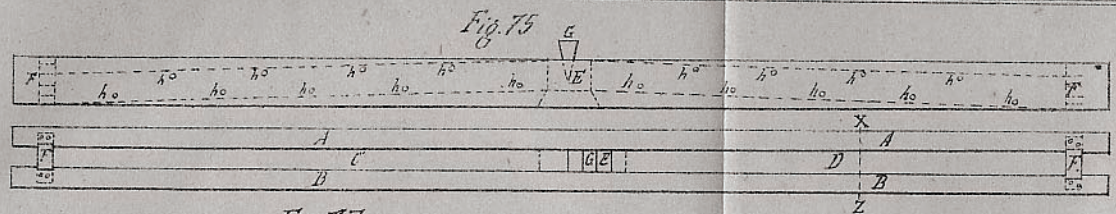 Fig. 75
G
F h° h° h° h° E h° h° h° h° F
h° h° h° h° h° h° h° h° h° h°
X
A A
F C G E D F
B B
Z